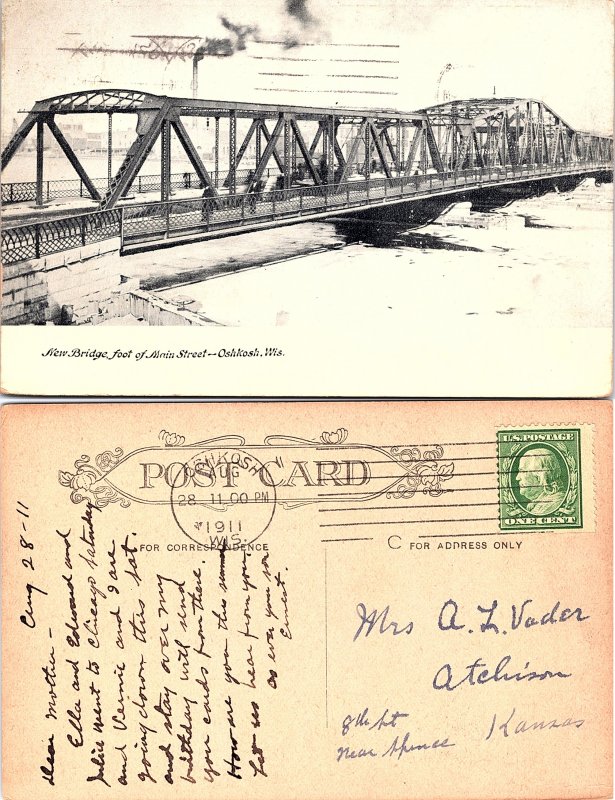 New Bridge, foot of Main Street--Oshkosh, Wis.
POST CARD
OSHKOSH
AUG
28 11 00 PM
1911
WIS.
U.S. POSTAGE
ONE CENT
FOR CORRESPONDENCE
C FOR ADDRESS ONLY
Aug 28-11
Dear Mother-
Ella and Edward and
Julie went to Chicago Saturday
and Vernie and I are
going down this Sat.
and stay over my
birthday will send
you cards from there.
How are you this
Let us hear from you.
as ever your son
Ernest.
Mrs A. L. Vader
Atchison
Kansas
8th st
near Spruce